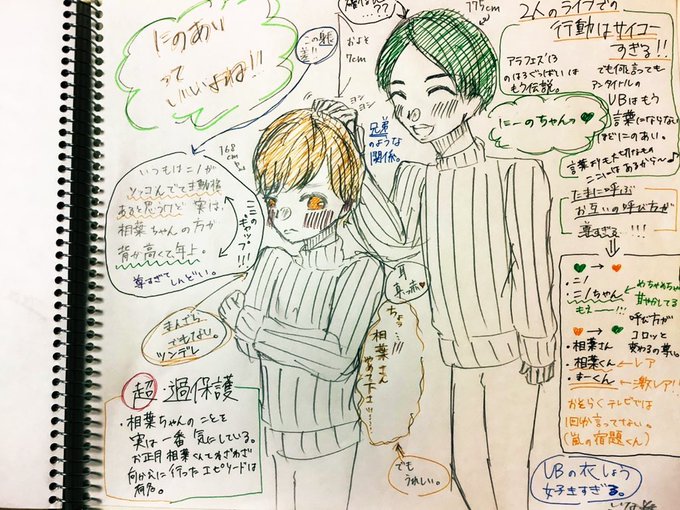 にのあい
って
いいよね!!
この身長差!!
およそ
7cm
ヨシ
ヨシ
175cm
168cm
兄弟
のような
関係。
いつもはニノが
ツッコんでて主動権
あると思うけど実は、
相葉ちゃんの方が
背が高くて年上。
尊すぎてしんどい。
このギャップ!!!
まんざら
でもない。
ツンデレ
超過保護
・相葉ちゃんのことを
実は一番気にしている。
お正月相葉くん家わざわざ
向かえに行ったエピソードは
有名。
耳
真っ赤
ちょっ…!!!
相葉さん
やめて下さい……
でも
うれしい。
2人のライブでの
行動はサイコー
すぎる!!
アラフェス'13
のはろぐっばいは
もう伝説。
でも何言っても
アンタイトルの
UBはもう
言葉にならない
ほどにのあい。
言葉よりも大切なもの
ここにはあるから〜♪
にーのちゃんっ♥
たまに呼ぶ
お互いの呼び方が
尊すぎる!!!
♥→♥
・ニノ
・ニノちゃん
めちゃめちゃ
甘やかしてる
もえー!!!
♥→♥
呼び方が
コロッと
変わるの尊い。
・相葉さん
・相葉くん←レア
・まーくん←激レア!!
おそらくテレビでは
1回か言ってない。
(嵐の宿題くん)
UBの衣しょう
好きすぎる。